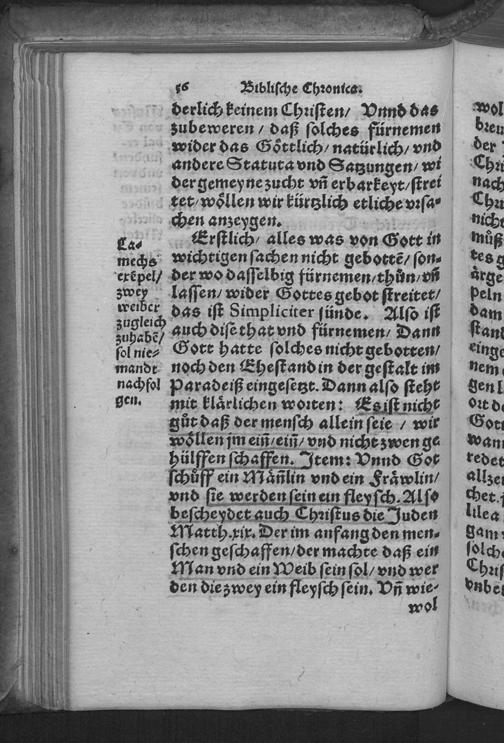 56 Biblische Chronica.
derlich keinem Christen / Vnnd das
zubeweren / daß solches fürnemen
wider das Göttlich / natürlich / vnd
andere Statuta vnd Satzungen / wi
der gemeyne zucht vñ erbarkeyt / strei
tet / wöllen wir kürtzlich etliche vrsa-
chen anzeygen.
Erstlich / alles was von Gott in
wichtigen sachen nicht gebottẽ / son-
der wo dasselbig fürnemen / thůn / vñ
lassen / wider Gottes gebot streitet /
das ist Simpliciter sünde. Also ist
auch dise that vnd fürnemen / Dann
Gott hatte solches nicht gebotten /
noch den Ehestand in der gestalt im
Paradeiß eingesetzt. Dann also steht
mit klärlichen worten: Es ist nicht
gůt daß der mensch allein seie / wir
wöllen jm eiñ / eiñ / vnd nicht zwen ge
hülffen schaffen. Item: Vnnd Got
schůff ein Mäñlin vnd ein Fräwlin /
vnd sie werden sein ein fleysch. Also
bescheydet auch Christus die Juden
Matth.xix. Der im anfang den men-
schen geschaffen / der machte daß ein
Man vnd ein Weib sein sol / vnd wer
den die zwey ein fleysch sein. Vñ wie-
wol
La-
mechs
exẽpel /
zwey
weiber
zugleich
zuhabẽ /
sol nie-
mandt
nachfol
gen.
wol
breu
der
Chri
nach
Chri
nicht
müß
tes g
ärge
peln
dam
stand
einge
nem
gen l
ort d
Gott
wan
redet
allze
chet.
lilea
gam
solch
Chris
vnbe